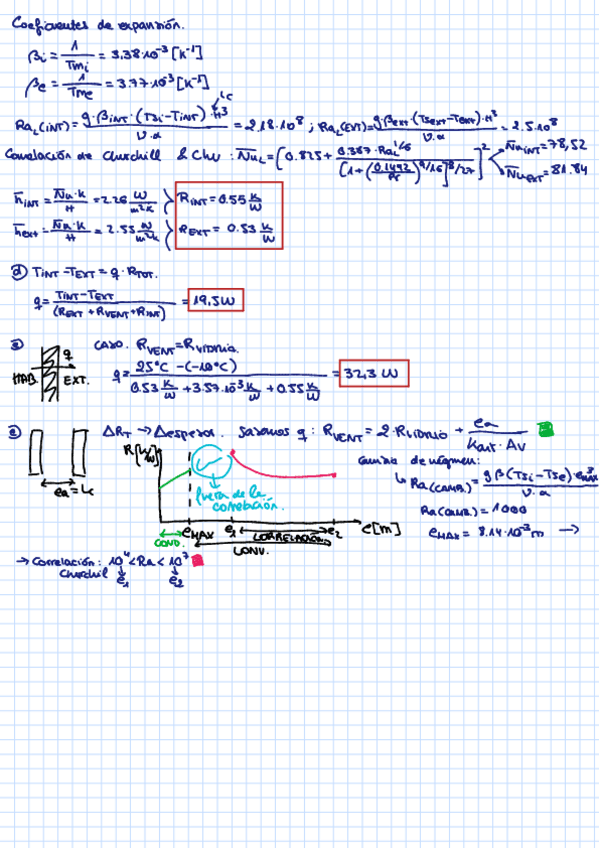 Coeficientes de expansión.
βi = 1/Tmi = 3,38·10⁻³ [K⁻¹]
βe = 1/Tme = 3.77·10⁻³ [K⁻¹]
Lc
RaL(INT) = g·βINT·(Tsi-TINT)·H³/(υ·α) = 2.18·10⁸ ; RaL(EXT) = g·βEXT·(TsEXT-TEXT)·H³/(υ·α) = 2.5·10⁸
Correlación de Churchill & Chu : N̄uL = [0.825 + 0.387·RaL^1/6 / [1+(0.1492/Pr)^9/16]^8/27]² N̄uINT = 78,52
N̄uEXT = 81.84
h̄INT = N̄u·k/H = 2.26 W/m²K } RINT = 0.55 K/W
h̄ext = N̄u·k/H = 2.55 W/m²K } REXT = 0.53 K/W
d) TINT-TEXT = q·RTOT.
q = TINT-TEXT/(REXT+RVENT+RINT) = 19,5W
CASO. RVENT=RVIDRIO.
HAB. q EXT.
q = 25ºC-(-10ºC)/(0.53 K/W + 3.57·10⁻³ K/W + 0.55 K/W) = 32,3 W
e) ΔRT → Δespesor. Sabemos q : RVENT = 2·RVIDRIO + ea/(kair·Av)
ea = Lc
R[K/W]
fuera de la correlación.
Cambio de régimen:
Ra(CAMB.) = gβ(Tsi-Tse)·e³MAX/(υ·α)
Ra(CAMB.) = 1000
eMAX = 8.14·10⁻³ m →
eMAX e1 e2 e[m]
COND. CORRELACIÓN
CONV.
→ Correlación: 10⁴ < Ra < 10⁷
Churchill e1 e2